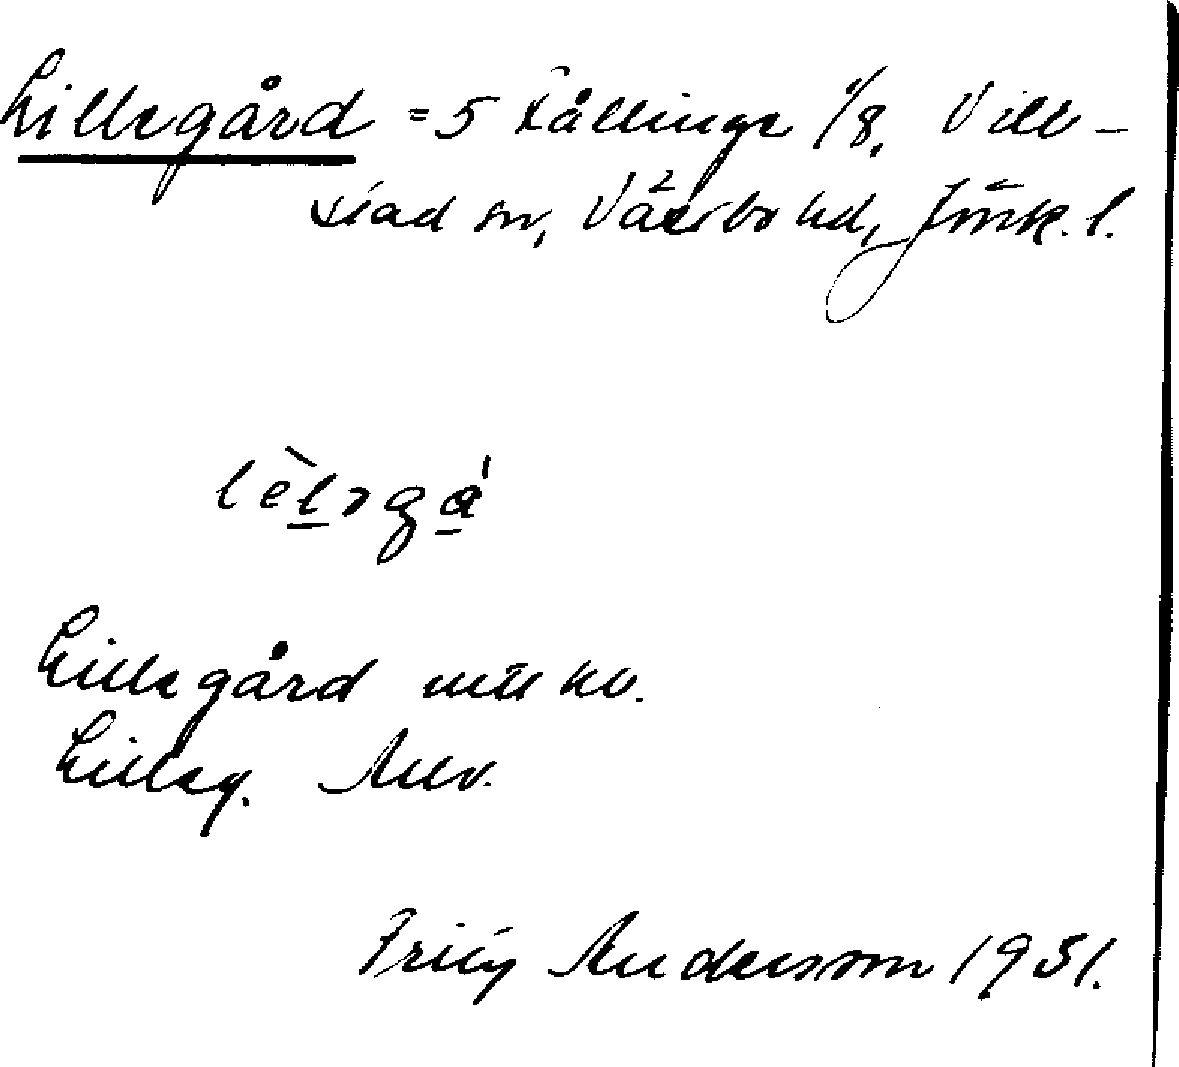 Lillegård = 5 Kållinge 1/8, Vill-
stad sn, Västbo hd, Jönk. l.
Lillegård
Lilleg.
Fritz Andersson 1951.